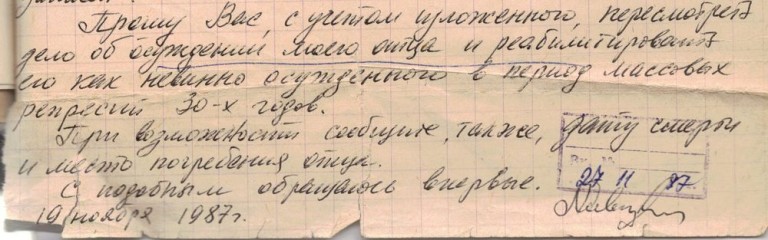 Прошу Вас, с учетом изложенного, пересмотреть
дело об осуждении моего отца и реабилитировать
его как невинно осужденного в период массовых
репрессий 30-х годов.
При возможности сообщите, также, дату смерти
и место погребения отца.
С подобным обращаюсь впервые.
27 11 87.
19 ноября 1987г.